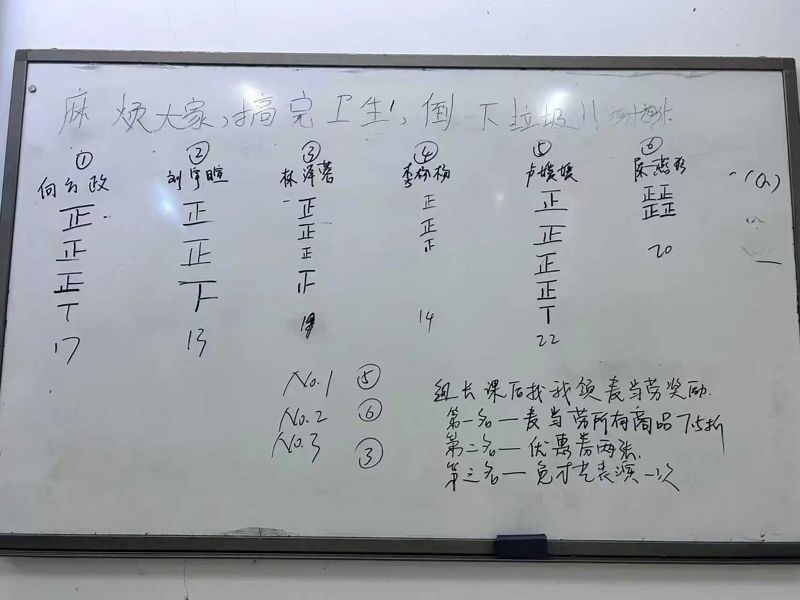 麻烦大家,搞完卫生,倒下垃圾!!
① ② ③ ④ ⑤ ⑥
向 政 刘宇暄 林泽蓉 李杨杨 卢媛媛
正 正 正 正 正 正正
正 正 正 正 正 正正
正 下 正 正 正 20
T 正 T
17 13 14 22
No.1 ⑤
No.2 ⑥
No.3 ③
组长课后找我领麦当劳奖励.
第一名—麦当劳所有商品7.5折
第二名—优惠券两张.
第三名—免才艺表演一次